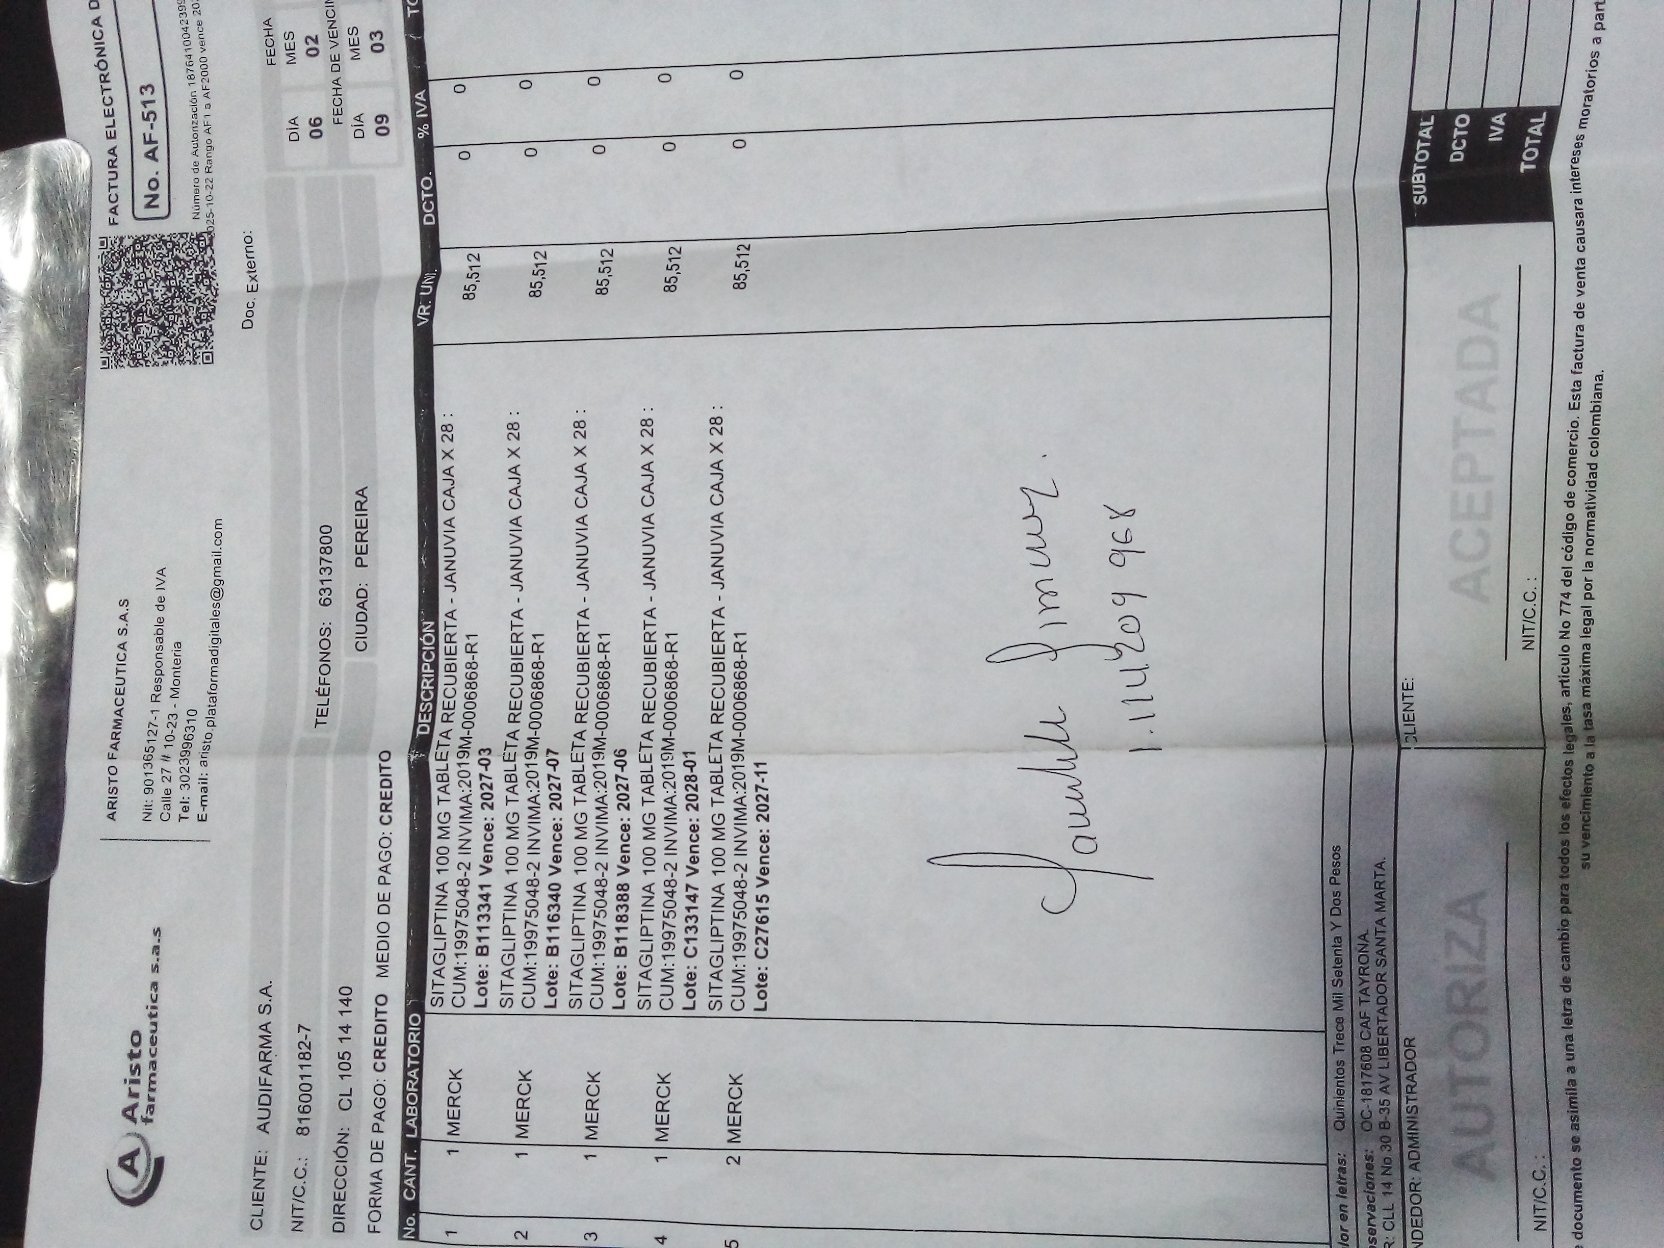 Aristo
farmaceutica s.a.s
ARISTO FARMACEUTICA S.A.S
Nit: 901365127-1 Responsable de IVA
Calle 27 # 10-23 - Monteria
Tel: 3023996310
E-mail: aristo.plataformadigitales@gmail.com
FACTURA ELECTRÓNICA D
No. AF-513
Número de Autorización 1876410042395
2025-10-22 Rango AF1 a AF2000 vence 20
Doc. Externo:
FECHA
DÍA MES
06 02
FECHA DE VENCI
DÍA MES
09 03
CLIENTE: AUDIFARMA S.A.
NIT/C.C.: 816001182-7
TELÉFONOS: 63137800
DIRECCIÓN: CL 105 14 140
CIUDAD: PEREIRA
FORMA DE PAGO: CREDITO MEDIO DE PAGO: CREDITO
No. CANT. LABORATORIO DESCRIPCIÓN VR. UNI. DCTO. % IVA TO
1 1 MERCK SITAGLIPTINA 100 MG TABLETA RECUBIERTA - JANUVIA CAJA X 28 : 85,512 0 0
CUM:19975048-2 INVIMA:2019M-0006868-R1
Lote: B113341 Vence: 2027-03
2 1 MERCK SITAGLIPTINA 100 MG TABLETA RECUBIERTA - JANUVIA CAJA X 28 : 85,512 0 0
CUM:19975048-2 INVIMA:2019M-0006868-R1
Lote: B116340 Vence: 2027-07
3 1 MERCK SITAGLIPTINA 100 MG TABLETA RECUBIERTA - JANUVIA CAJA X 28 : 85,512 0 0
CUM:19975048-2 INVIMA:2019M-0006868-R1
Lote: B118388 Vence: 2027-06
4 1 MERCK SITAGLIPTINA 100 MG TABLETA RECUBIERTA - JANUVIA CAJA X 28 : 85,512 0 0
CUM:19975048-2 INVIMA:2019M-0006868-R1
Lote: C133147 Vence: 2028-01
5 2 MERCK SITAGLIPTINA 100 MG TABLETA RECUBIERTA - JANUVIA CAJA X 28 : 85,512 0 0
CUM:19975048-2 INVIMA:2019M-0006868-R1
Lote: C27615 Vence: 2027-11
lor en letras: Quinientos Trece Mil Setenta Y Dos Pesos
servaciones: OC-1817608 CAF TAYRONA.
R: CLL 14 No 30 B-35 AV LIBERTADOR SANTA MARTA.
NDEDOR: ADMINISTRADOR
CLIENTE:
SUBTOTAL
DCTO
IVA
TOTAL
AUTORIZA
ACEPTADA
NIT/C.C. :
NIT/C.C. :
documento se asimila a una letra de cambio para todos los efectos legales, articulo No 774 del código de comercio. Esta factura de venta causara intereses moratorios a part
su vencimiento a la tasa máxima legal por la normatividad colombiana.